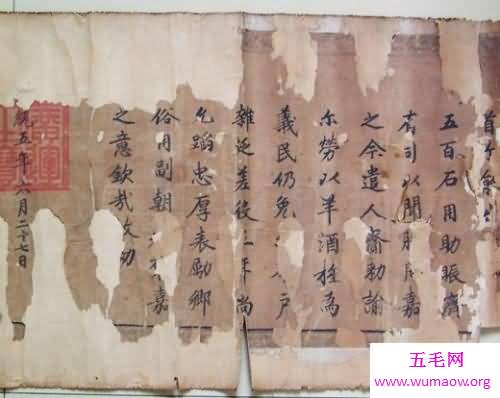 五百石用助賑濟
有司以聞朕用嘉
之今遣人齎勑諭
尔勞以羊酒旌為
義民仍免戶
雜泛差役三年尚
允蹈忠厚表勵鄉
俗用副朝嘉
之意欽哉故勑
統五年六月二十七日
五毛网
www.wumaow.org